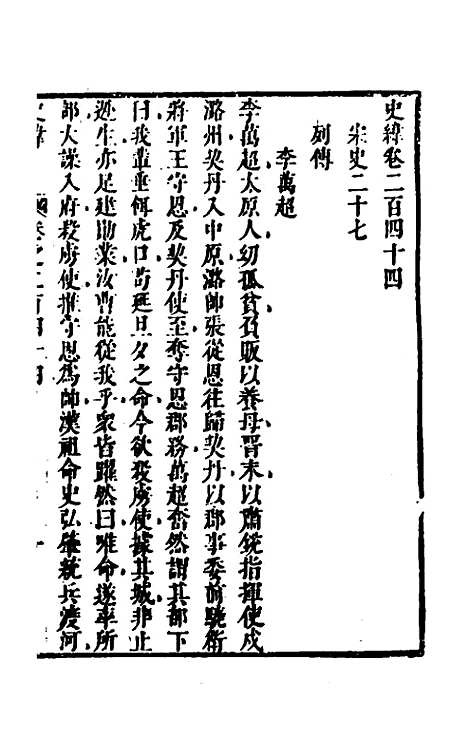 史緯卷二百四十四
宋史二十七
列傳
李萬超
李萬超太原人幼孤貧負販以養母晉末以肅銳指揮使戍
潞州契丹入中原潞帥張從恩往歸契丹以郡事委前驍衛
將軍王守恩及契丹使至奪守恩郡務萬超奮然謂其部下
曰我輩垂餌虎口苟延旦夕之命今欲殺虜使據其城非止
逃生亦足建勛業汝曹能從我乎衆皆躍然曰唯命遂率所
部大譟入府殺虜使推守恩爲帥漢祖命史弘肇統兵渡河